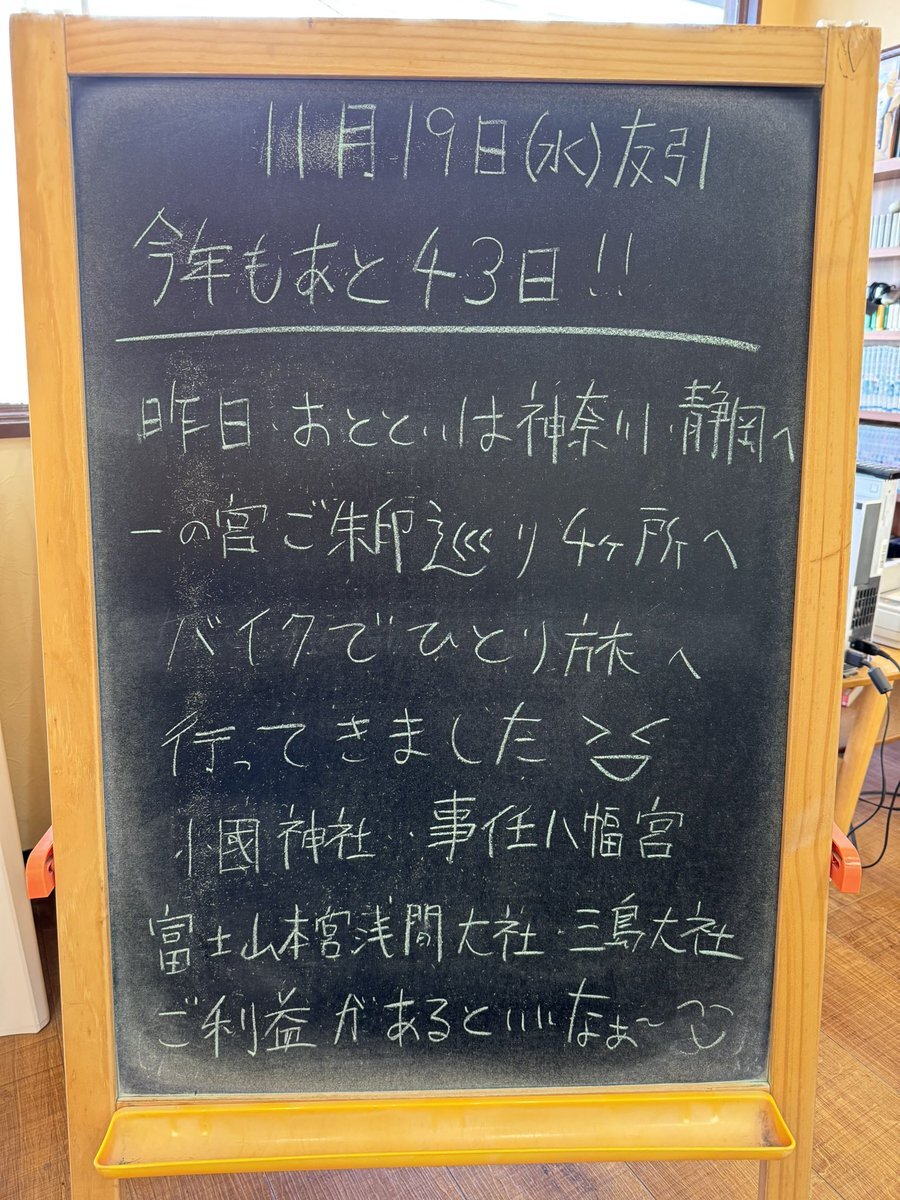 11月19日(水)友引
今年もあと43日!!
昨日・おとといは神奈川・静岡へ
一の宮ご朱印巡り4ヶ所へ
バイクでひとり旅へ
行ってきました
小國神社・事任八幡宮
富士山本宮浅間大社・三島大社
ご利益があるといいなぁ〜